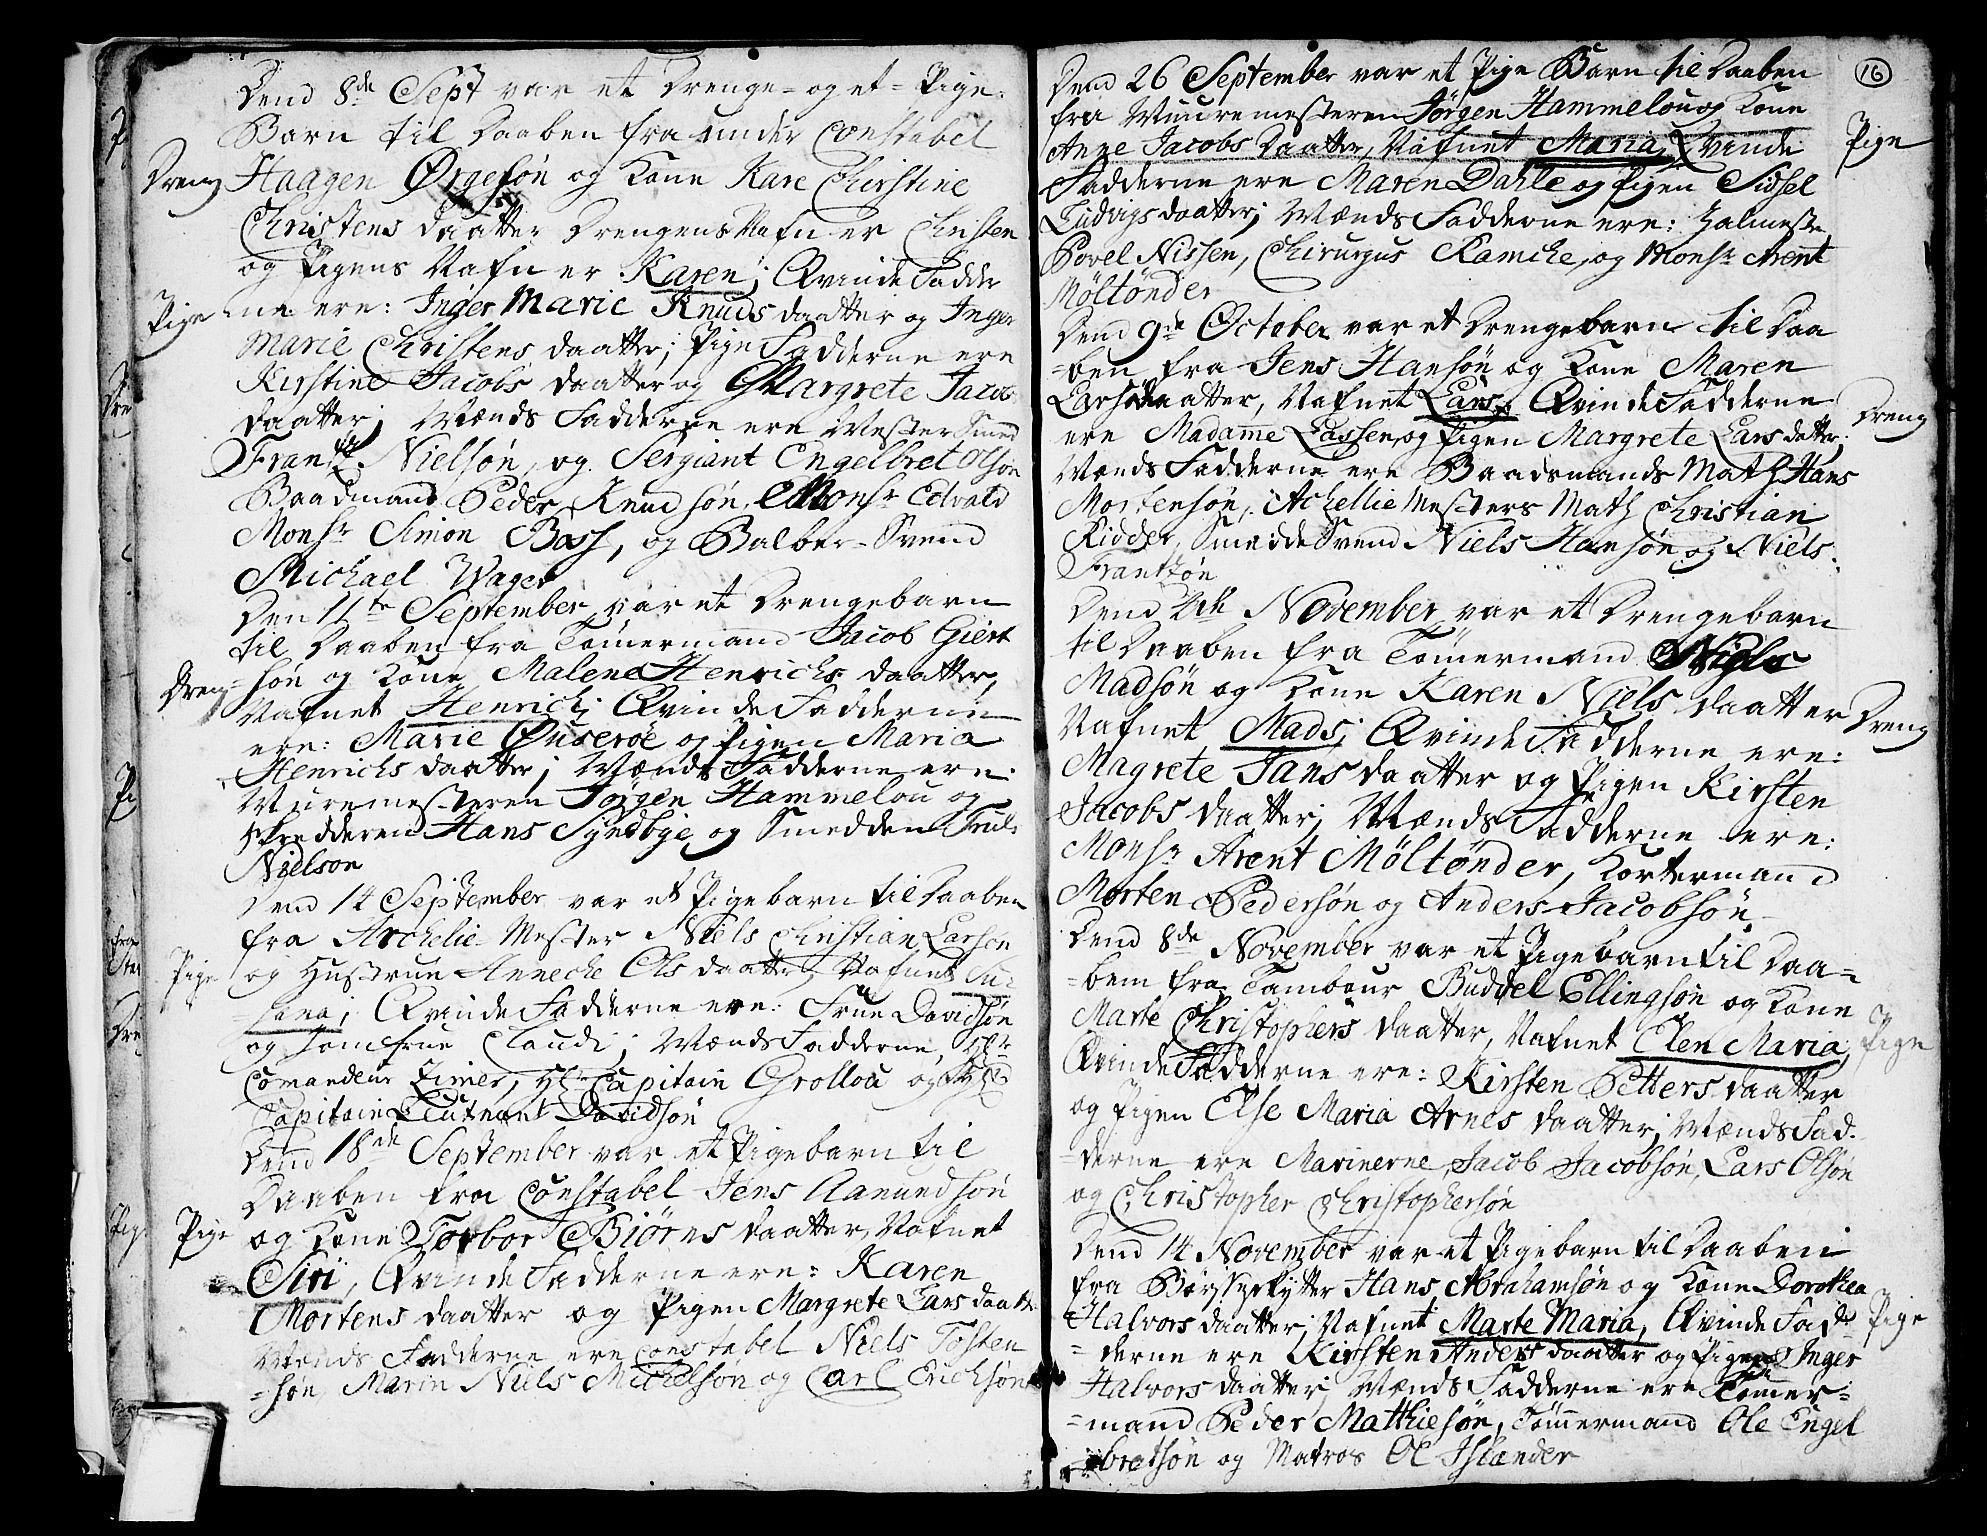 Dend 8de Sept var et Drenge- og et - Pige-
Barn til Daaben fra under Constabel
Dreng Haagen Ørgesøn og Kone Kare Chirstine
Christens daatter Drengens Nafn er Christen
og Pigens Nafn er Karen; Qvinde Fadder
Pige ne ere: Inger Marie Knuds daatter og Inger
Marie Christens daatter; Pige Fadderne ere
Kirstine Jacobs daatter og Margrete Jacobs
daatter; Mænds Fadderne ere Mester Smed
Frantz Nielsøn, og Sergiant Engelbret Olsøn
Baadmand Peder Knudsøn, Monsr Edvald
Monsr Simon Bash, og Balber-Svend
Michael Wager
Den 11te September var et Drengebarn
til Daaben fra Tømermand Jacob Giert
Dreng -søn og Kone Malene Henrichs daatter,
Nafnet Henrich; Qvinde Fadderne
ere: Marie Ønserøe og Pigen Maria
Henrichs daatter; Mænds Fadderne ere:
Muremesteren Jørgen Hammelou og
Skredderen Hans Syndbye og Smedden Truls
Nielson
Dend 14 September var et Pigebarn til Daaben
fra Archelie-Mester Niels Christian Larsøn
Pige og Hustrue Annecke Ols daatter, Nafnet Su-
-sana; Qvinde Fadderne ere: Frue Davidsøn
og Jomfrue Claudi; Mænds Fadderne, Hr
Comandeur Zimer, Hr Capitain Grollou og
Capitain Leutnant Davidsøn
Dend 18de September var et Pigebarn til
Daaben fra Constabel Jens Aamundsøn
Pige og Kone Torbor Biørns daatter, Nafnet
Siri, Qvinde Fadderne ere: Karen
Mortens daatter og Pigen Margrete Lars daatter
Mænds Fadderne ere Constabel Niels Tosten
-søn Marin Niels Michelsøn og Carl Erichsøn
16
Dend 26 September var et Pige Barn til Daaben
fra Muuremesteren Jørgen Hammelou og Kone
Anne Jacobs Daatter, Nafnet Maria, Qvinde Pige
Fadderne ere Maren Dahle og Pigen Sidsel
Ludvigs daatter; Mænds Fadderne ere:
Povel Nissen, Chirurgus Ramche, og Monsr Arent
Möltönder
Dend 9de October var et Drengebarn til Daa
-ben fra Jens Hansøn og Kone Maren
Larsdaatter, Nafnet Lars, Qvinde Fadderne Dreng
ere Madame Lassen, og Pigen Margrete Lars datter.
Mænds Fadderne ere Baadsmands Math Hans
Mortensøn, Achellie Mesters Math Christian
Ridder, Smedde Svend Niels Hansøn og Niels
Frantzøn
Dend 4de November var et Drengebarn
til Daaben fra Tømermand Niels
Madsøn og Kone Karen Niels daatter Dreng
Nafnet Mads; Qvinde Fadderne ere:
Magrete Jans daatter og Pigen Kirsten
Jacobs daatter; Mænds Fadderne ere:
Monsr Arent Möltönder, Kortermand
Morten Pedersøn og Anders Jacobsøn
Dend 8de November var et Pigebarn til Daa-
-bem fra Tambour Buddel Ellingsøn og Kone
Marte Christophers daatter, Nafnet Elen Maria, Pige
Qvinde Fadderne ere: Kirsten Petters daatter
og Pigen Else Maria Arnes daatter; Mænds Fad-
-derne ere Marinerne, Jacob Jacobsøn, Lars Olsøn
og Christopher Christophersøn
Dend 14 November var et Pigebarn til Daaben
fra Børsseskytter Hans Abrahamsøn og Kone Dorothea
Halvors daatter; Nafnet Marte Maria, Qvinde Fad- Pige
-derne ere Kirsten Anders daatter og Pigen Inger
Halvors daatter; Mænds Fadderne ere Tømer-
-mand Peder Matthiesøn, Tømmermand Ole Engel
bretsøn og Matros Ole Islænder